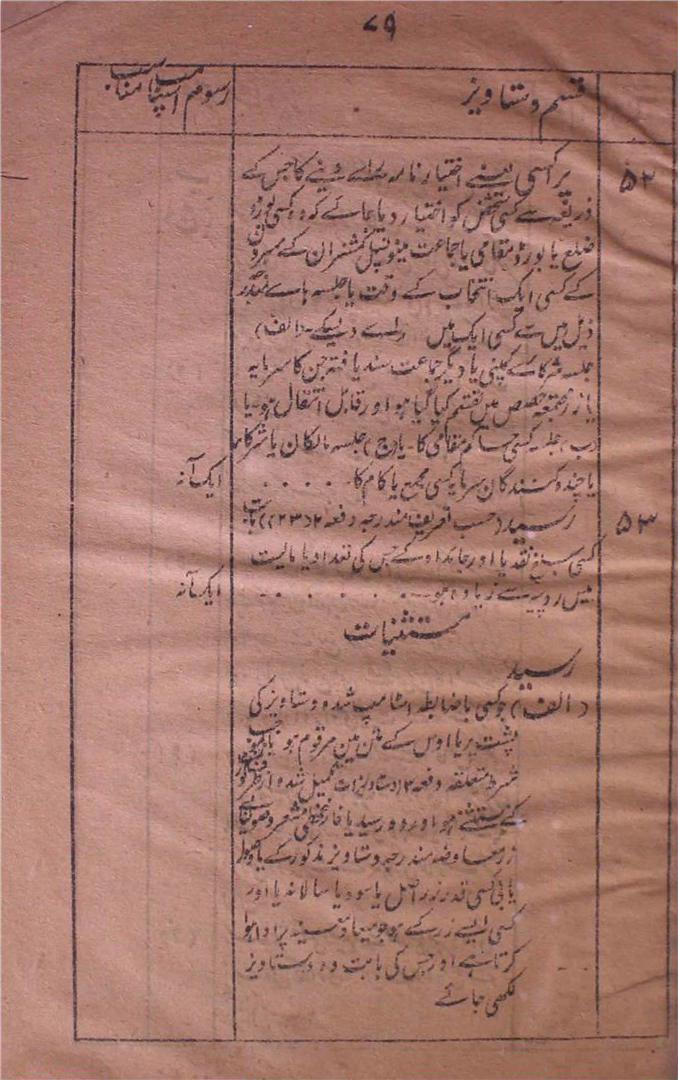 ۷۹
قسم دستاویز
رسوم اسٹامپ مناسب
۵۲
پراکسی یعنے اختیار نامہ راے دینے کا جس کے
ذریعہ سے کسی شخص کو اختیار دیا جائے کہ وہ کسی بورڈ
ضلع یا بورڈ مقامی یا جماعت مینوسپل کمشنران کے ممبروں
کے کسی ایک انتخاب کے وقت یا جلسہ ہاے مندرجہ
ذیل میں سے کسی ایک میں راے دیسکے۔ (الف)
جلسہ شرکاے کمپنی یا دیگر جماعت سند یافتہ جن کا سرمایہ
یا زر مجتمعہ حصص میں تقسیم کیا گیا ہو اور قابل انتقال ہو۔ یا
(ب) جلسہ کسی حاکم مقامی کا۔ یا (ج) جلسہ مالکان یا شرکاء
یا چندہ کنندگان سرمایہ کسی مجمع یا کام کا . . . . .
ایک آنہ
۵۳
رسید (حسب تعریف مندرجہ دفعہ ۲ (۲۳)) بابت
کسی مبلغ نقد یا اور جائداد کے جس کی تعداد یا مالیت
بیس روپیہ سے زیادہ ہو . . . . . . .
ایک آنہ
مستثنیات
رسید
(الف) جو کسی باضابطہ اسٹامپ شدہ دستاویز کی
پشت پر یا اوس کے متن مین مرقوم ہو یا جو بموجب
شرط متعلقہ دفعہ ۳ (دستاویزات تکمیل شدہ از طرف گورنمنٹ)
کے مستثنے ہو اور وہ رسید یا فارغخطی مشعر وصولیابی
زر معاوضہ مندرجہ دستاویز مذکور کے یا وصول
یابی کسی قدر زر اصل یا سود یا سالانہ یا اور
کسی ایسے زر کے ہو جو میعاد معینہ پر ادا ہوا
کرتا ہے اور جس کی بابت وہ دستاویز
لکھی جائے